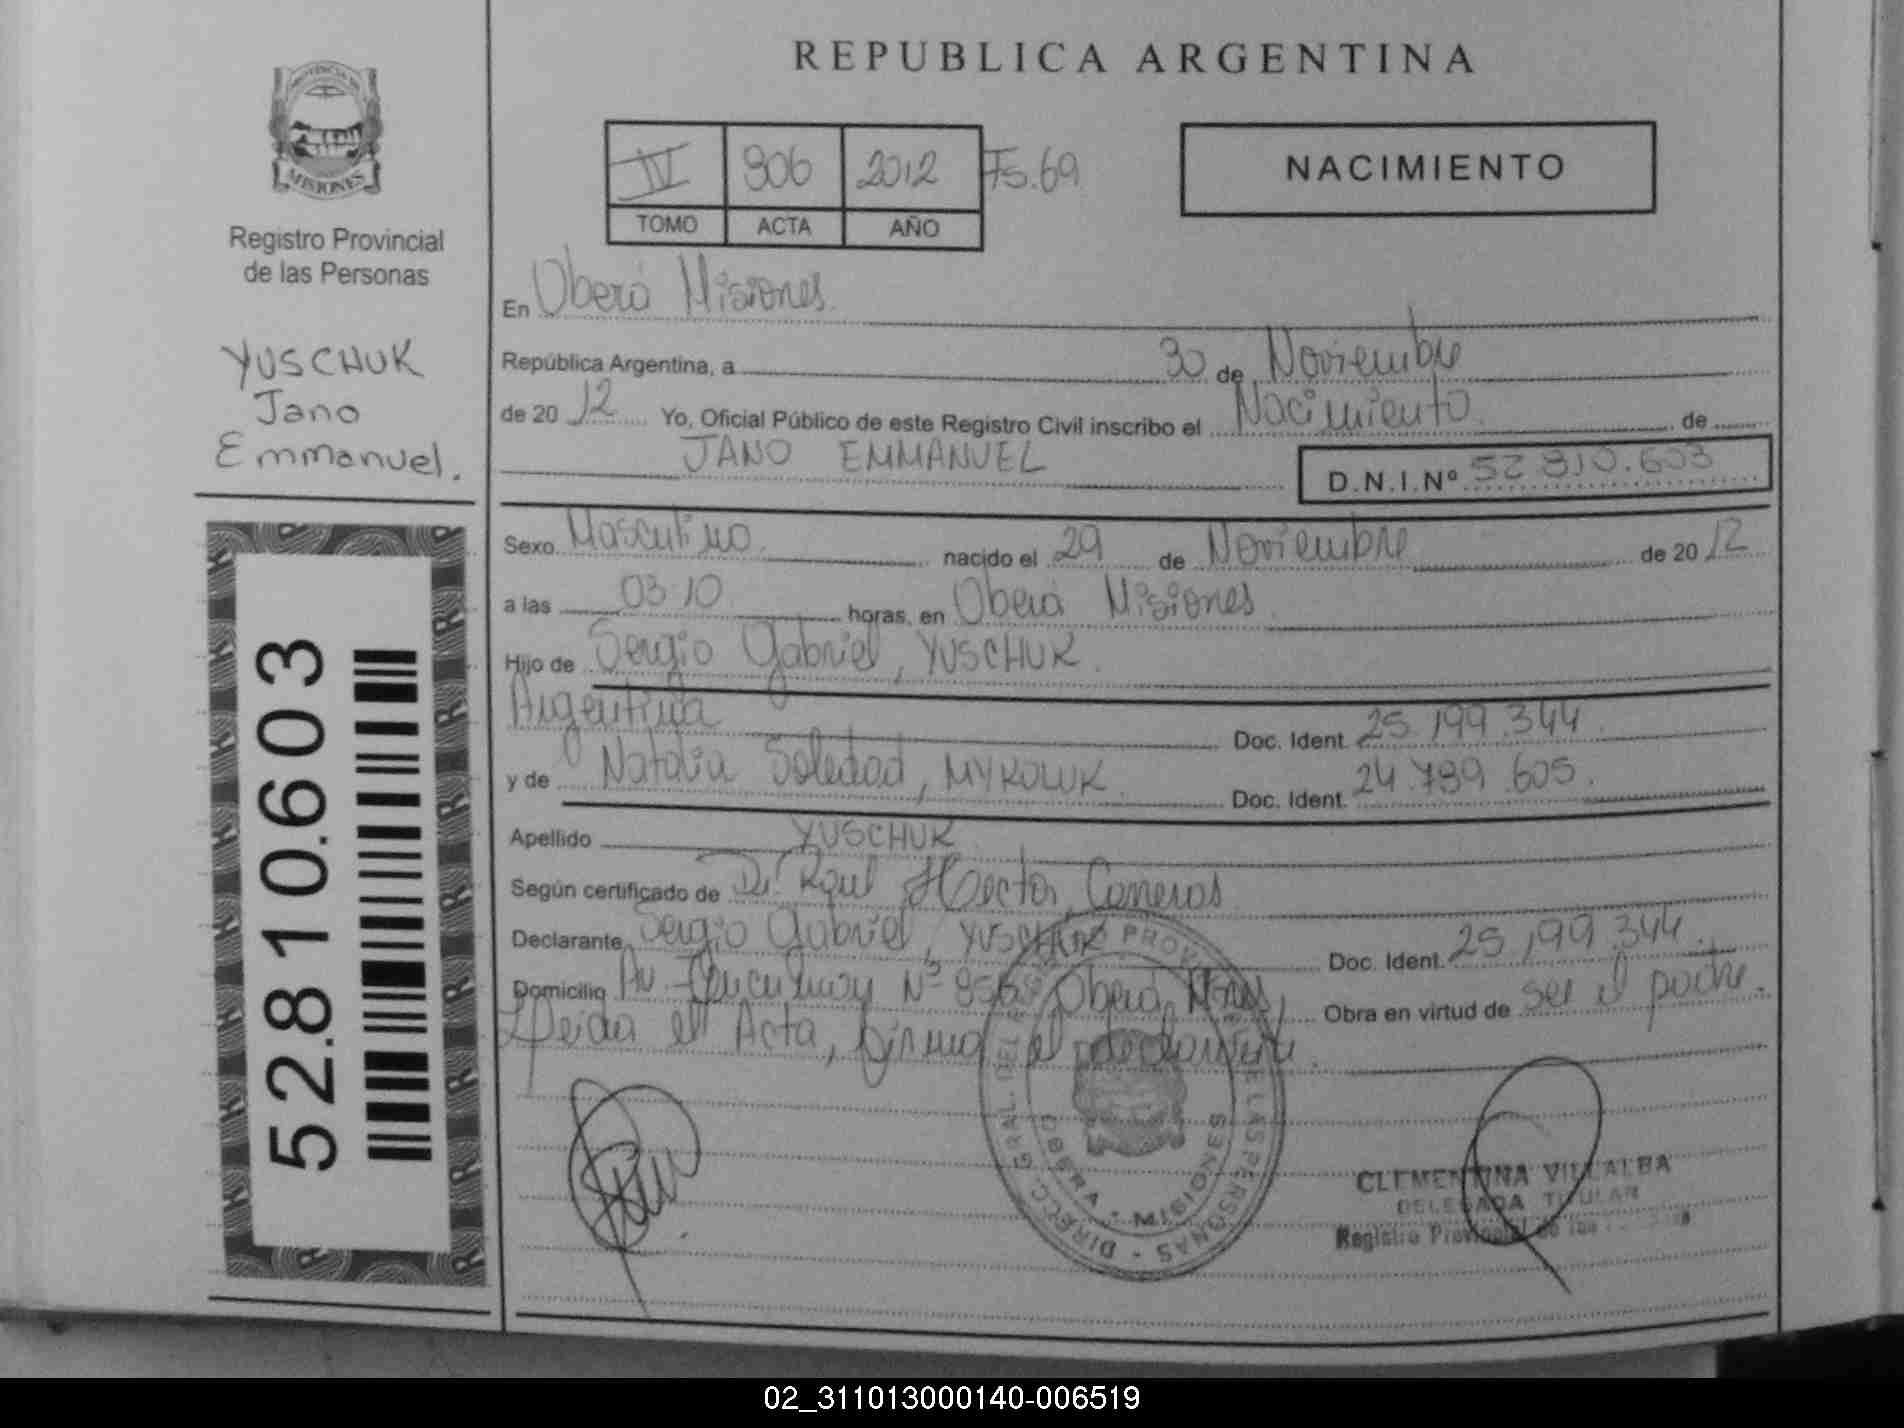 REPUBLICA ARGENTINA
PROVINCIA DE
MISIONES
Registro Provincial
de las Personas
YUSCHUK
Jano
Emmanuel.
52.810.603
IV 906 2012 Fs.69
TOMO ACTA AÑO
NACIMIENTO
En Oberá Misiones
República Argentina, a 30 de Noviembre
de 2012 Yo, Oficial Público de este Registro Civil inscribo el Nacimiento de
JANO EMMANUEL
D.N.I.Nº 52 810.603
Sexo Masculino nacido el 29 de Noviembre de 2012
a las 03:10 horas, en Oberá Misiones
Hijo de Sergio Gabriel, YUSCHUK
Argentina Doc. Ident. 25.199.344
y de Natalia Soledad, MYKOLUK Doc. Ident. 24.799.605.
Apellido YUSCHUK
Según certificado de Dr. Raul Hector
Declarante Sergio Gabriel, YUSCHUK Doc. Ident. 25.199.344
Domicilio Av. Nº Oberá, Obra en virtud de ser el padre.
Leida el Acta, firma el declarante.
DIREC. GRAL. DEL PROV. DE LAS PERSONAS
OBERA - MISIONES
CLEMENTINA VILLALBA
DELEGADA TITULAR
Registro Provincial de las
02_311013000140-006519